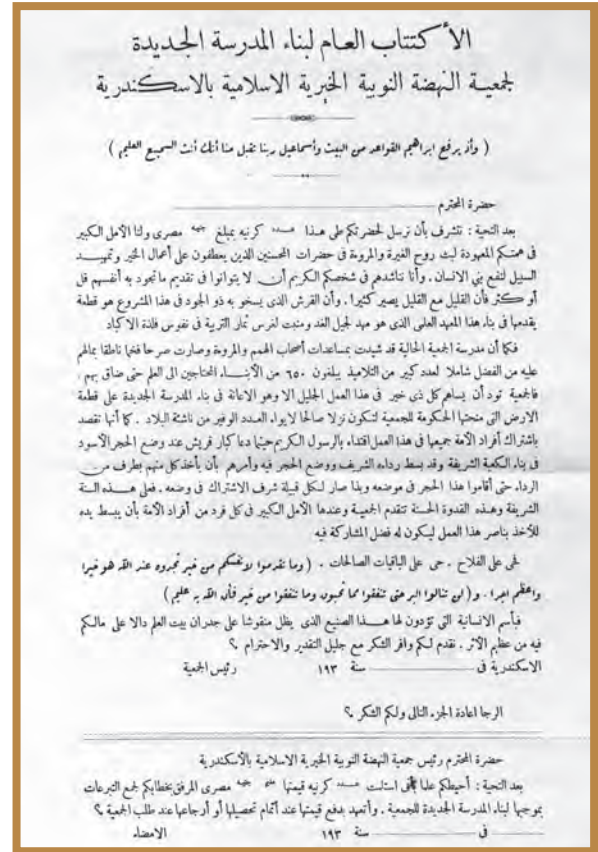 الأكتتاب العام لبناء المدرسة الجديدة
لجمعية النهضة النوبية الخيرية الاسلامية بالاسكندرية
( وأذ يرفع ابراهيم القواعد من البيت وأسماعيل ربنا تقبل منا أنك أنت السميع العليم )
حضرة المحترم
بعد التحية : نتشرف بأن نرسل لحضرتكم طى هذا عدد كرنيه بمبلغ جنيه مصرى ولنا الأمل الكبير
فى همتكم المعهودة لبث روح الغيرة والمروءة فى حضرات المحسنين الذين يعطفون على أعمال الخير وتمهيد
السبيل لنفع بنى الانسان . وأنا نناشدهم فى شخصكم الكريم أن لا يتوانوا فى تقديم ما تجود به أنفسهم قل
أو كثر فأن القليل مع القليل يصير كثيرا . وأن القرش الذى يسخو به ذو الجود فى هذا المشروع هو قطعة
يقدمها فى بناء هذا المعهد العلمى الذى هو مهد لجيل الغد ومنبت لغرس ثمار التربية فى نفوس فلذة الاكباد
فكما أن مدرسة الجمعية الحالية قد شيدت بمساعدات أصحاب الهمم والمروءة وصارت صرحا فخما ناطقا بمالهم
عليه من الفضل شاملا لعدد كبير من التلاميذ يبلغون ٦٥٠ من الأبناء المحتاجين الى العلم حتى ضاق بهم .
فالجمعية تود أن يساهم كل ذى خير فى هذا العمل الجليل الا وهو الاعانة فى بناء المدرسة الجديدة على قطعة
الارض التى منحتها الحكومة للجمعية لتكون نزلا صالحا لايواء العدد الوفير من ناشئة البلاد . كما أنها تقصد
باشتراك أفراد الأمة جميعها فى هذا العمل اقتداء بالرسول الكريم حينما دعا كبار قريش عند وضع الحجر الأسود
فى بناء الكعبة الشريفة وقد بسط رداءه الشريف ووضع الحجر فيه وأمرهم بأن يأخذ كل منهم بطرف من
الرداء حتى أقاموا هذا الحجر فى موضعه وبذا صار لكل قبيلة شرف الاشتراك فى وضعه . فعلى هذه السنة
الشريفة وهذه القدوة الحسنة تتقدم الجمعية وعندها الأمل الكبير فى كل فرد من أفراد الأمة بأن يبسط يده
للأخذ بناصر هذا العمل ليكون له فضل المشاركة فيه
فحى على الفلاح . حى على الباقيات الصالحات . ( وما تقدموا لأنفسكم من خير تجدوه عند الله هو خيرا
واعظم اجرا . و ( لن تنالوا البر حتى تنفقوا مما تحبون وما تنفقوا من خير فأن الله به عليم )
فبأسم الانسانية التى تؤدون لها هذا الصنيع الذى يظل منقوشا على جدران بيت العلم دالا على مالكم
فيه من عظيم الأثر . نقدم لكم وافر الشكر مع جليل التقدير والاحترام ؟
الاسكندرية فى سنة ١٩٣ رئيس الجمعية
الرجا اعادة الجزء التالى ولكم الشكر ؟
حضرة المحترم رئيس جمعية النهضة النوبية الخيرية الاسلامية بالأسكندرية
بعد التحية : أحيطكم علما بأنى استلمت عدد كرنيه قيمتها مليم جنيه مصرى المرفق بخطابكم لجمع التبرعات
بموجبها لبناء المدرسة الجديدة للجمعية . وأتعهد بدفع قيمتها عند أتمام تحصيلها أو أرجاعها عند طلب الجمعية ؟
فى سنة ١٩٣ الامضاء